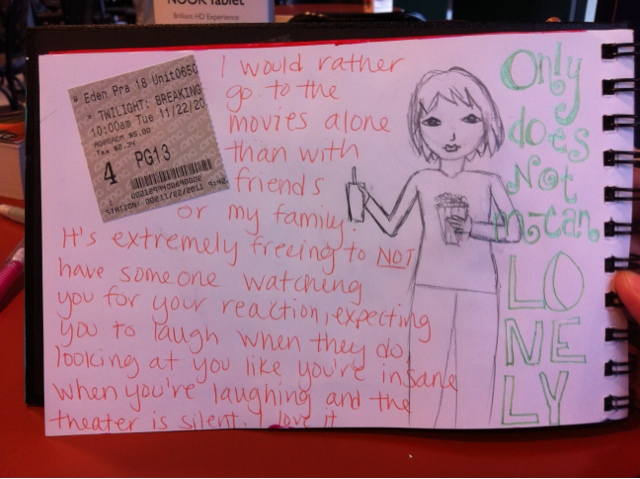 NOOK Tablet
Brilliant HD Experience
Eden Pra 18 Unit065
TWILIGHT: BREAKING
10:00am Tue 11/22/20
$5.00
Tax $0.34
4 PG13
I would rather
go to the
movies alone
than with
friends
or my family.
It's extremely freeing to NOT
have someone watching
you for your reaction, expecting
you to laugh when they do,
looking at you like you're insane
when you're laughing and the
theater is silent. I love it
Only
does
Not
mean
LO
NE
LY